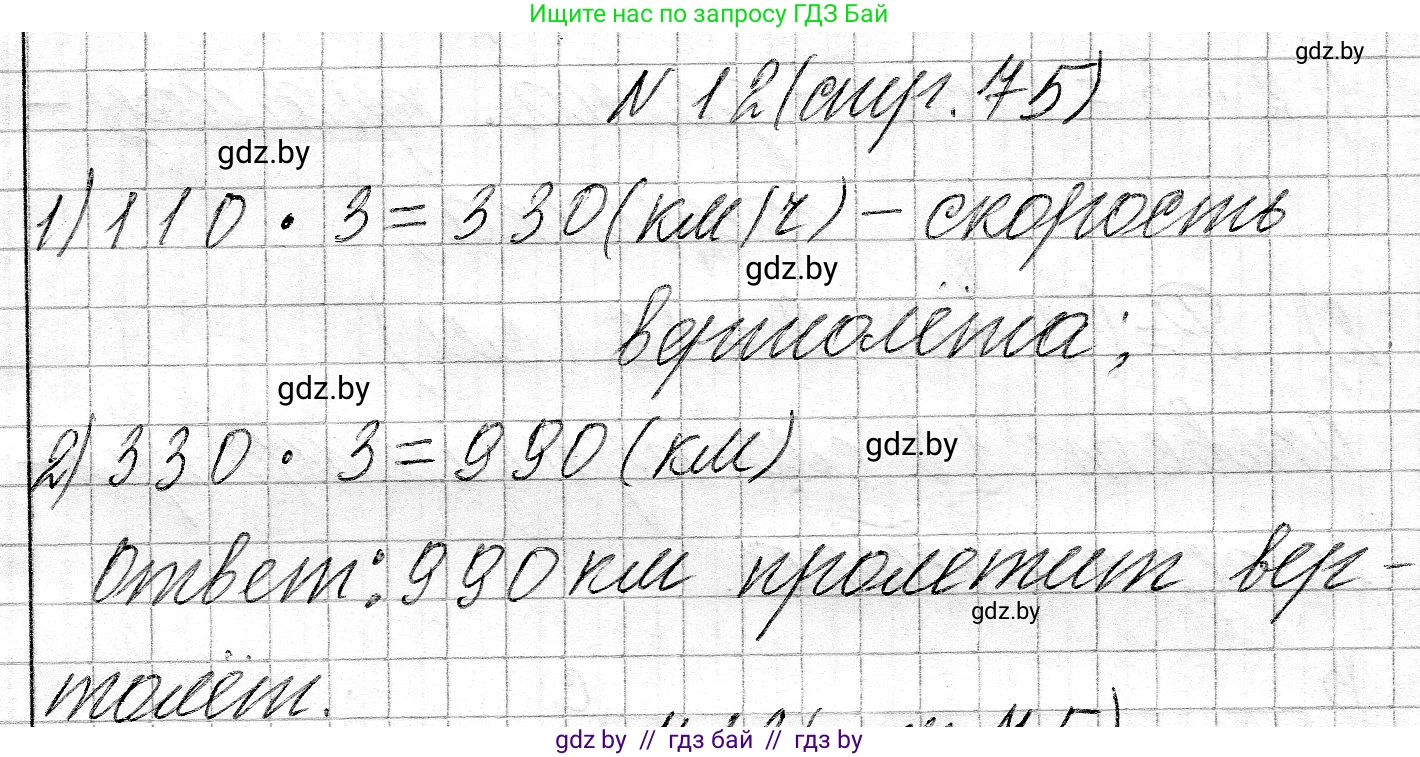 Ищите нас по запросу ГДЗ Бай
gdz.by
N 12 (стр. 75)
gdz.by
1) 110 · 3 = 330 (км/ч) – скорость
gdz.by
вертолёта;
gdz.by
2) 330 · 3 = 990 (км)
gdz.by
Ответ: 990 км пролетит вер-
gdz.by
толёт.
gdz by // гдз бай // гдз by